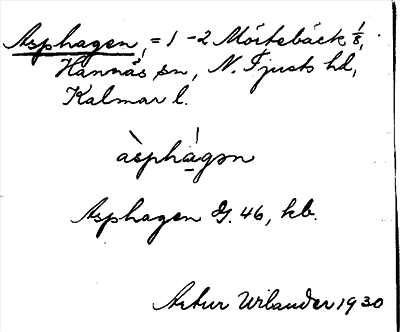 Asphagen, = 1-2 Mörtebäck 1/8,
Hannäs sn, N. Tjusts hd,
Kalmar l.
àsphágən
Asphagen G. 46, kb.
Artur Wilander 1930